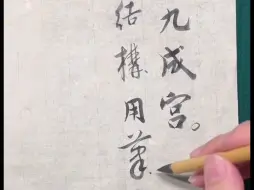 九成宫。
结構用筆